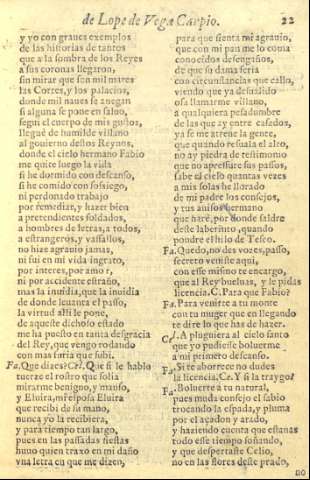 de Lope de Vega Carpio. 22
y yo con graues exemplos
de las historias de tantos
que a la sombra de los Reyes
a sus coronas llegaron,
sin mirar que son mil mares
las Cortes, y los palacios,
donde mil naues se anegan
si alguna se pone en saluo,
segui el cuerpo de mis gustos,
llegué de humilde villano
al gouierno destos Reynos,
donde el cielo hermano Fabio
me quite luego la vida
si he dormido con descanso,
si he comido con sosiego,
ni perdonado trabajo
por remediar, y hazer bien
a pretendientes soldados,
a hombres de letras, a todos,
a estrangeros, y vassallos,
no hize agrauio jamas,
ni fui en mi vida ingrato,
por interes, por amor,
ni por accidente estraño,
mas la inuidia, que la inuidia
de donde leuanta el passo,
la virtud alli le pone,
de aqueste dichoso estado
me ha puesto en tanta desgracia
del Rey, que vengo rodando
con mas furia que subi.
Fa. Que dizes? Cel. Que si le hablo
tuerze el rostro que solia
mirarme benigno, y manso,
y Eluira, mi esposa Eluira
que recibi de su mano,
nunca yo la recibiera,
y para tiempo tan largo,
pues en las passadas fiestas
huuo quien traxo en mi daño
vna letra en que me dizen,
para que sienta mi agrauio,
que con mi pan me lo coma
conocidos desengaños,
de que su dama seria
con circunstancias que callo,
viendo que ya desualido
osa llamarme villano,
a qualquiera pesadumbre
de las que ay entre casados,
ya se me atreue la gente,
que quando resuala el alto,
no ay piedra de testimonio
que no apressure sus passos,
sabe el cielo quantas vezes
a mis solas he llorado
de mi padre los consejos,
y tus auisos hermano
que haré, por donde saldre
deste laberinto, quando
pondre el hilo de Teseo.
Fa. Quedo, no des vozes, passo,
secreto veniste aqui,
con esse mismo te encargo,
que al Rey bueluas, y le pidas
licencia. C. Para que Fabio?
Fa. Para venirte a tu monte
con tu muger que en llegando
te dire lo que has de hazer.
Ce. A pluguiera al cielo santo
que yo pudiesse boluerme
a mi primero descanso.
Fa. Si te aborrece no dudes
la licencia. Ce. Y si la traygo?
Fa. Boluerte a tu natural,
pues muda consejo el sabio
trocando la espada, y pluma
por el açadon y arado,
y haziendo cuenta que estauas
todo esse tiempo soñando,
y que despertaste Celio,
no en las flores deste prado,
no